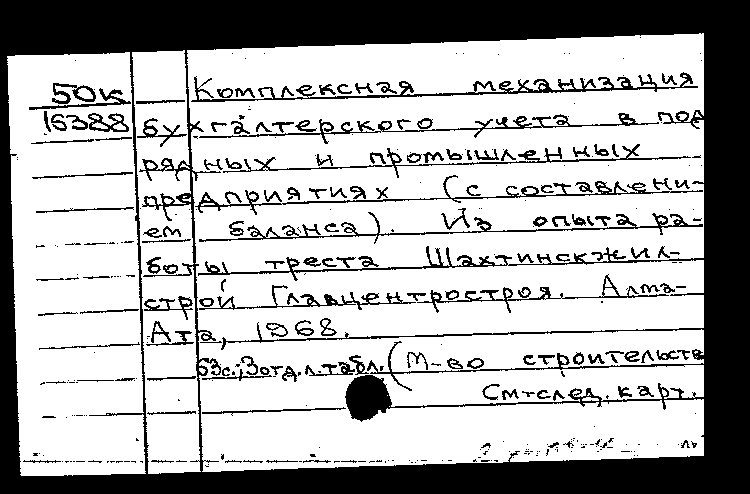 50к Комплексная механизация
16388 бухгалтерского учета в под
рядных и промышленных
предприятиях (с составлени-
ем баланса). Из опыта ра-
боты треста Шахтинскжил-
строй Главцентростроя. Алма-
Ата, 1968.
63с.; 3отд.л.табл. (М-во строительств
См-след. карт.